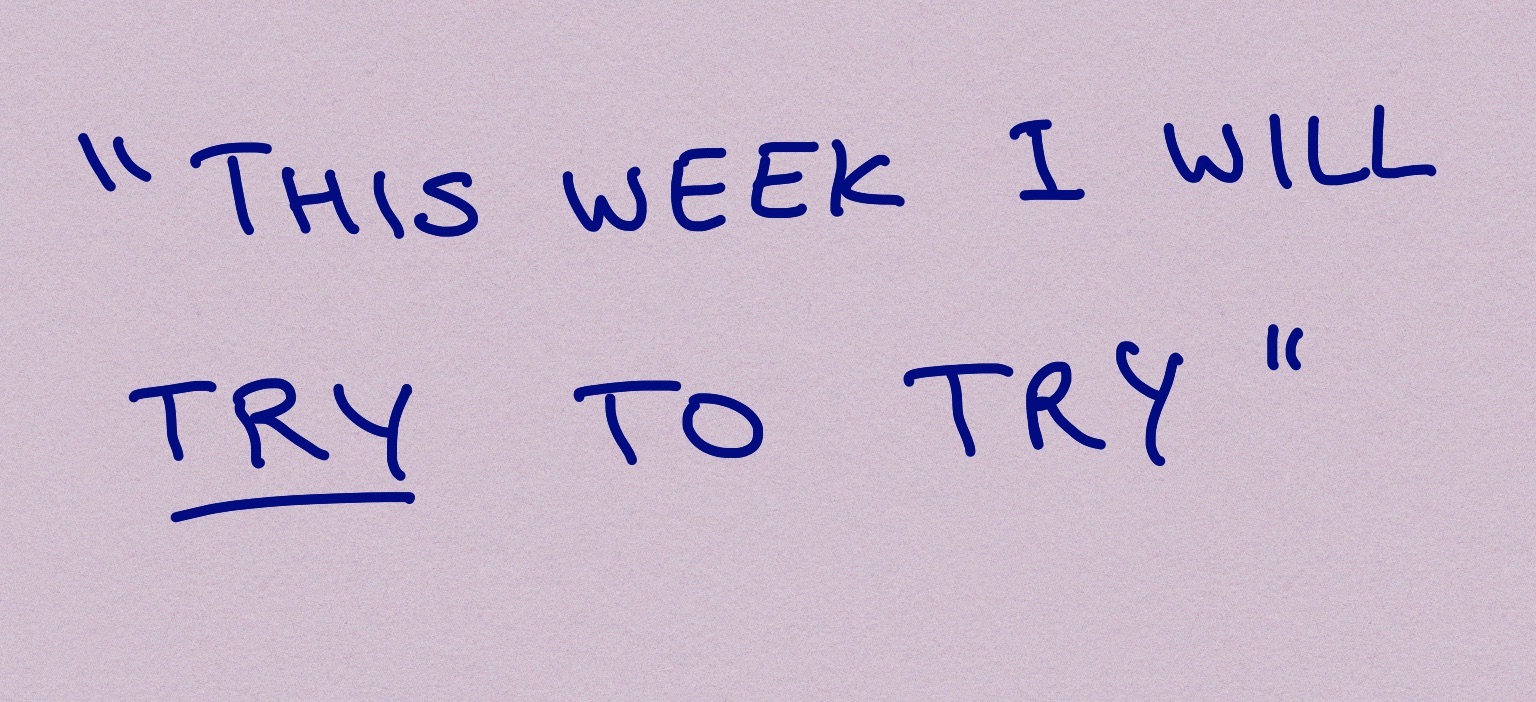 "THIS WEEK I WILL
TRY TO TRY"